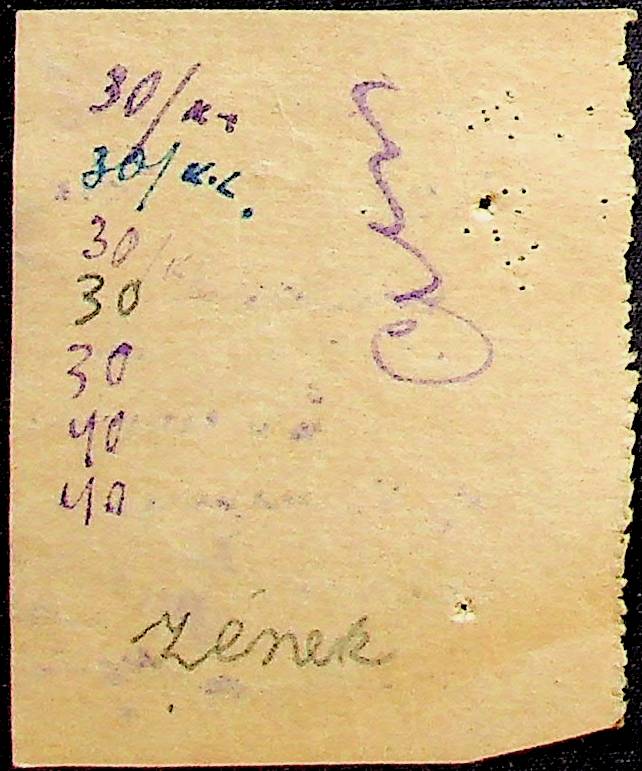 30/к.
30/к.с.
30/к
30
30
40
40
Zének